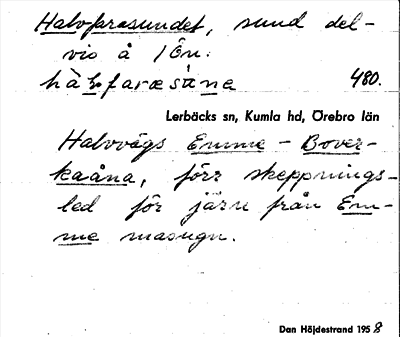 Halvfarasundet, sund del-
vis å 1 Ön:
hàlvfaræsúnə 480.
Lerbäcks sn, Kumla hd, Örebro län
Halvvägs Emme - Bover-
kaåna, förr skeppnings-
led för järn från Em-
me masugn.
Dan Höjdestrand 1958